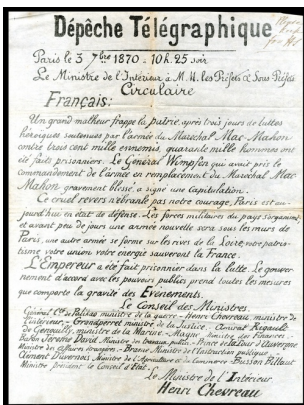 Dépêche Télégraphique
Paris le 3 7bre 1870 - 10h.25 soir
Le Ministre de l'Intérieur à M.M. les Préfets & Sous Préfets
Circulaire
Français:
Un grand malheur frappe la patrie, après trois jours de luttes
héroïques soutenues par l'armée du Maréchal Mac-Mahon
contre trois cent mille ennemis, quarante mille hommes ont
été faits prisonniers. Le Général Wempfen qui avait pris le
commandement de l'armée en remplacement du Maréchal Mac
Mahon gravement blessé a signé une capitulation.
Ce cruel revers n'ébranle pas notre courage, Paris est au-
jourd'hui en état de défense. Les forces militaires du pays s'organisent,
et avant peu de jours une armée nouvelle sera sous les murs de
Paris, une autre armée se forme sur les rives de la Loire. Votre patrio-
tisme votre union votre énergie sauveront la France.
L'Empereur a été fait prisonnier dans la lutte. Le gouver-
nement d'accord avec les pouvoirs publics prend toutes les mesures
que comporte la gravité des Evénements.
Le Conseil des Ministres.
Général Cte de Palikao ministre de la guerre - Henri Chevreau ministre de
l'intérieur - Grandperret ministre de la Justice - Amiral Rigault
de Genouilly, ministre de la Marine - Magne ministre des finances
Baron Jérôme David Ministre des travaux publics - Prince de la Tour d'Auvergne
Ministre des affaires étrangères - Brame Ministre de l'instruction publique
Clément Duvernois Ministre de l'Agriculture et du Commerce - Busson Billault
Ministre président le Conseil d'Etat.
Le Ministre de l'Intérieur
Henri Chevreau